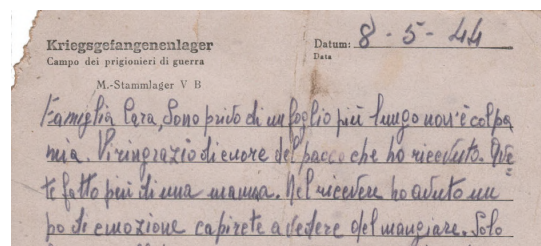 Kriegsgefangenenlager
Datum: 8 - 5 - 44
Campo dei prigionieri di guerra
Data
M.-Stammlager V B
Famiglia Cara, Sono privo di un foglio più lungo non è colpa
mia. Vi ringrazio di cuore del pacco che ho ricevuto. Ave
te fatto più di una manna. Nel ricevere ho avuto un
po di emozione capirete a vedere del mangiare. Solo